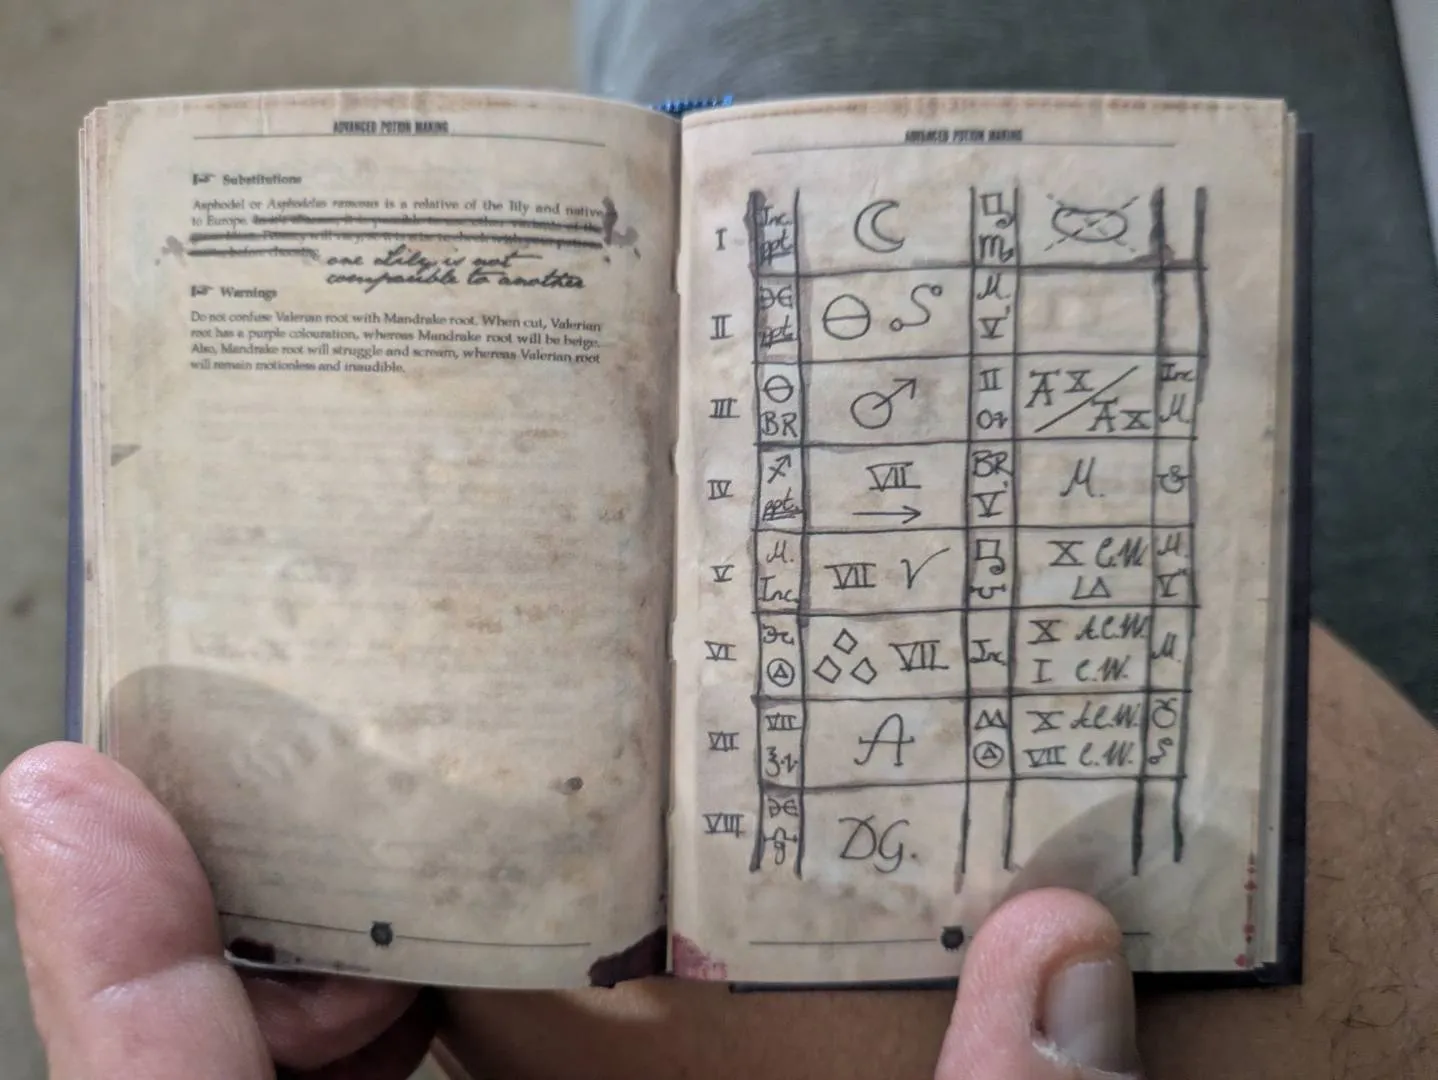 ADVANCED POTION MAKING
Substitutions
Asphodel or Asphodelus ramosus is a relative of the lily and native
to Europe.
one Lily is not
compatible to another
Warnings
Do not confuse Valerian root with Mandrake root. When cut, Valerian
root has a purple colouration, whereas Mandrake root will be beige.
Also, Mandrake root will struggle and scream, whereas Valerian root
will remain motionless and inaudible.
ADVANCED POTION MAKING
I Inc. ppt.
II ppt. M. V
III BR II AX/AX Inc. M.
IV ppt. VII → BR V M.
V M. Inc. VII X C.W. M. V
VI VII Inc. X A.C.W. I C.W. M.
VII VII A X A.C.W. VII C.W.
VIII DG.